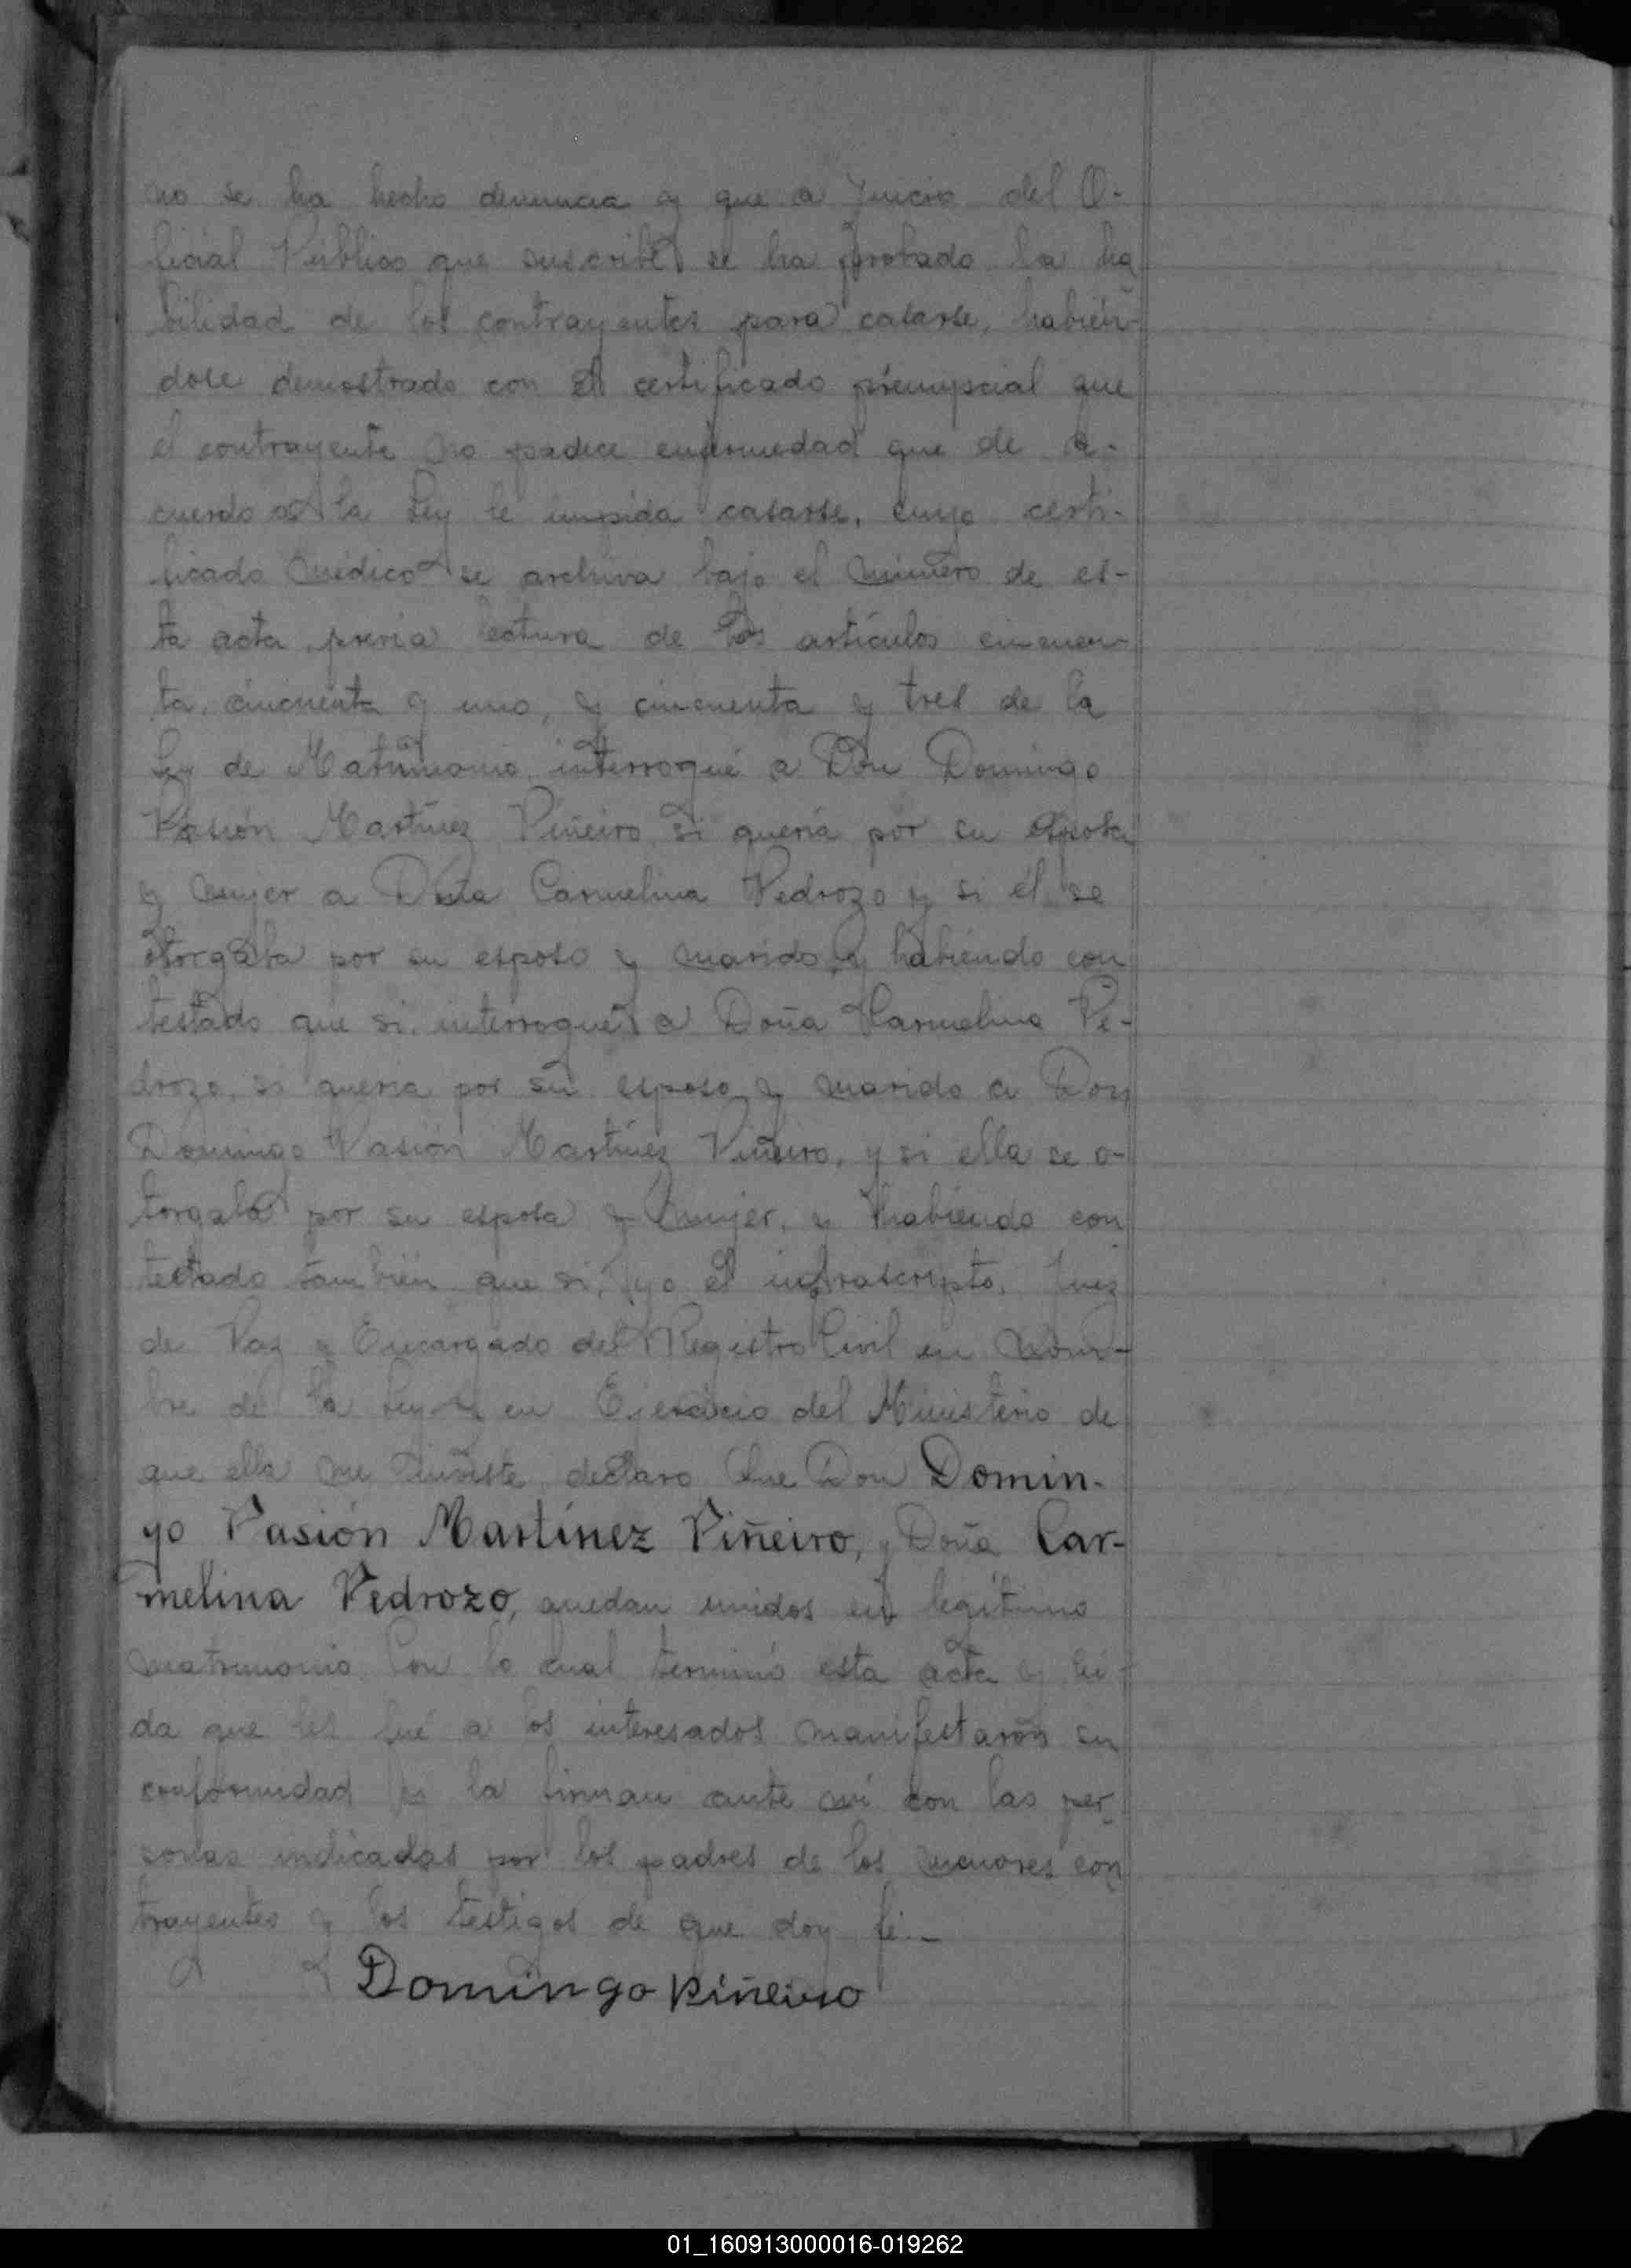 no se ha hecho denuncia y que a juicio del O-
ficial Público que suscribe se ha probado la ha
bilidad de los contrayentes para casarse, habién-
dose demostrado con el certificado prenupcial que
el contrayente no padece enfermedad que de a-
cuerdo a la Ley le impida casarse, cuyo certi-
ficado médico se archiva bajo el número de es-
ta acta, previa lectura de los artículos cincuen-
ta, cincuenta y uno, y cincuenta y tres de la
Ley de Matrimonio, interrogué a Don Domingo
Pasión Martínez Piñeiro, si quería por su esposa
y mujer a Doña Carmelina Pedrozo y si él se
otorgaba por su esposo y marido, y habiendo con
testado que si, interrogué a Doña Carmelina Pe-
drozo, si quería por su esposo y marido a Don
Domingo Pasión Martínez Piñeiro, y si ella se o-
torgaba por su esposa y mujer, y habiendo con
testado también que si, yo el infrascripto, Juez
de Paz y Encargado del Registro Civil en nom-
bre de la Ley y en Ejercicio del Ministerio de
que ella me inviste declaro Que Don Domin-
go Pasión Martínez Piñeiro, y Doña Car-
melina Pedrozo, quedan unidos en legítimo
matrimonio. Con lo cual terminó esta acta y leí-
da que les fué a los interesados manifestaron su
conformidad y la firman ante mí con las per
sonas indicadas por los padres de los menores con
trayentes y los testigos de que doy fé.-
Domingo Piñeiro
01_160913000016-019262